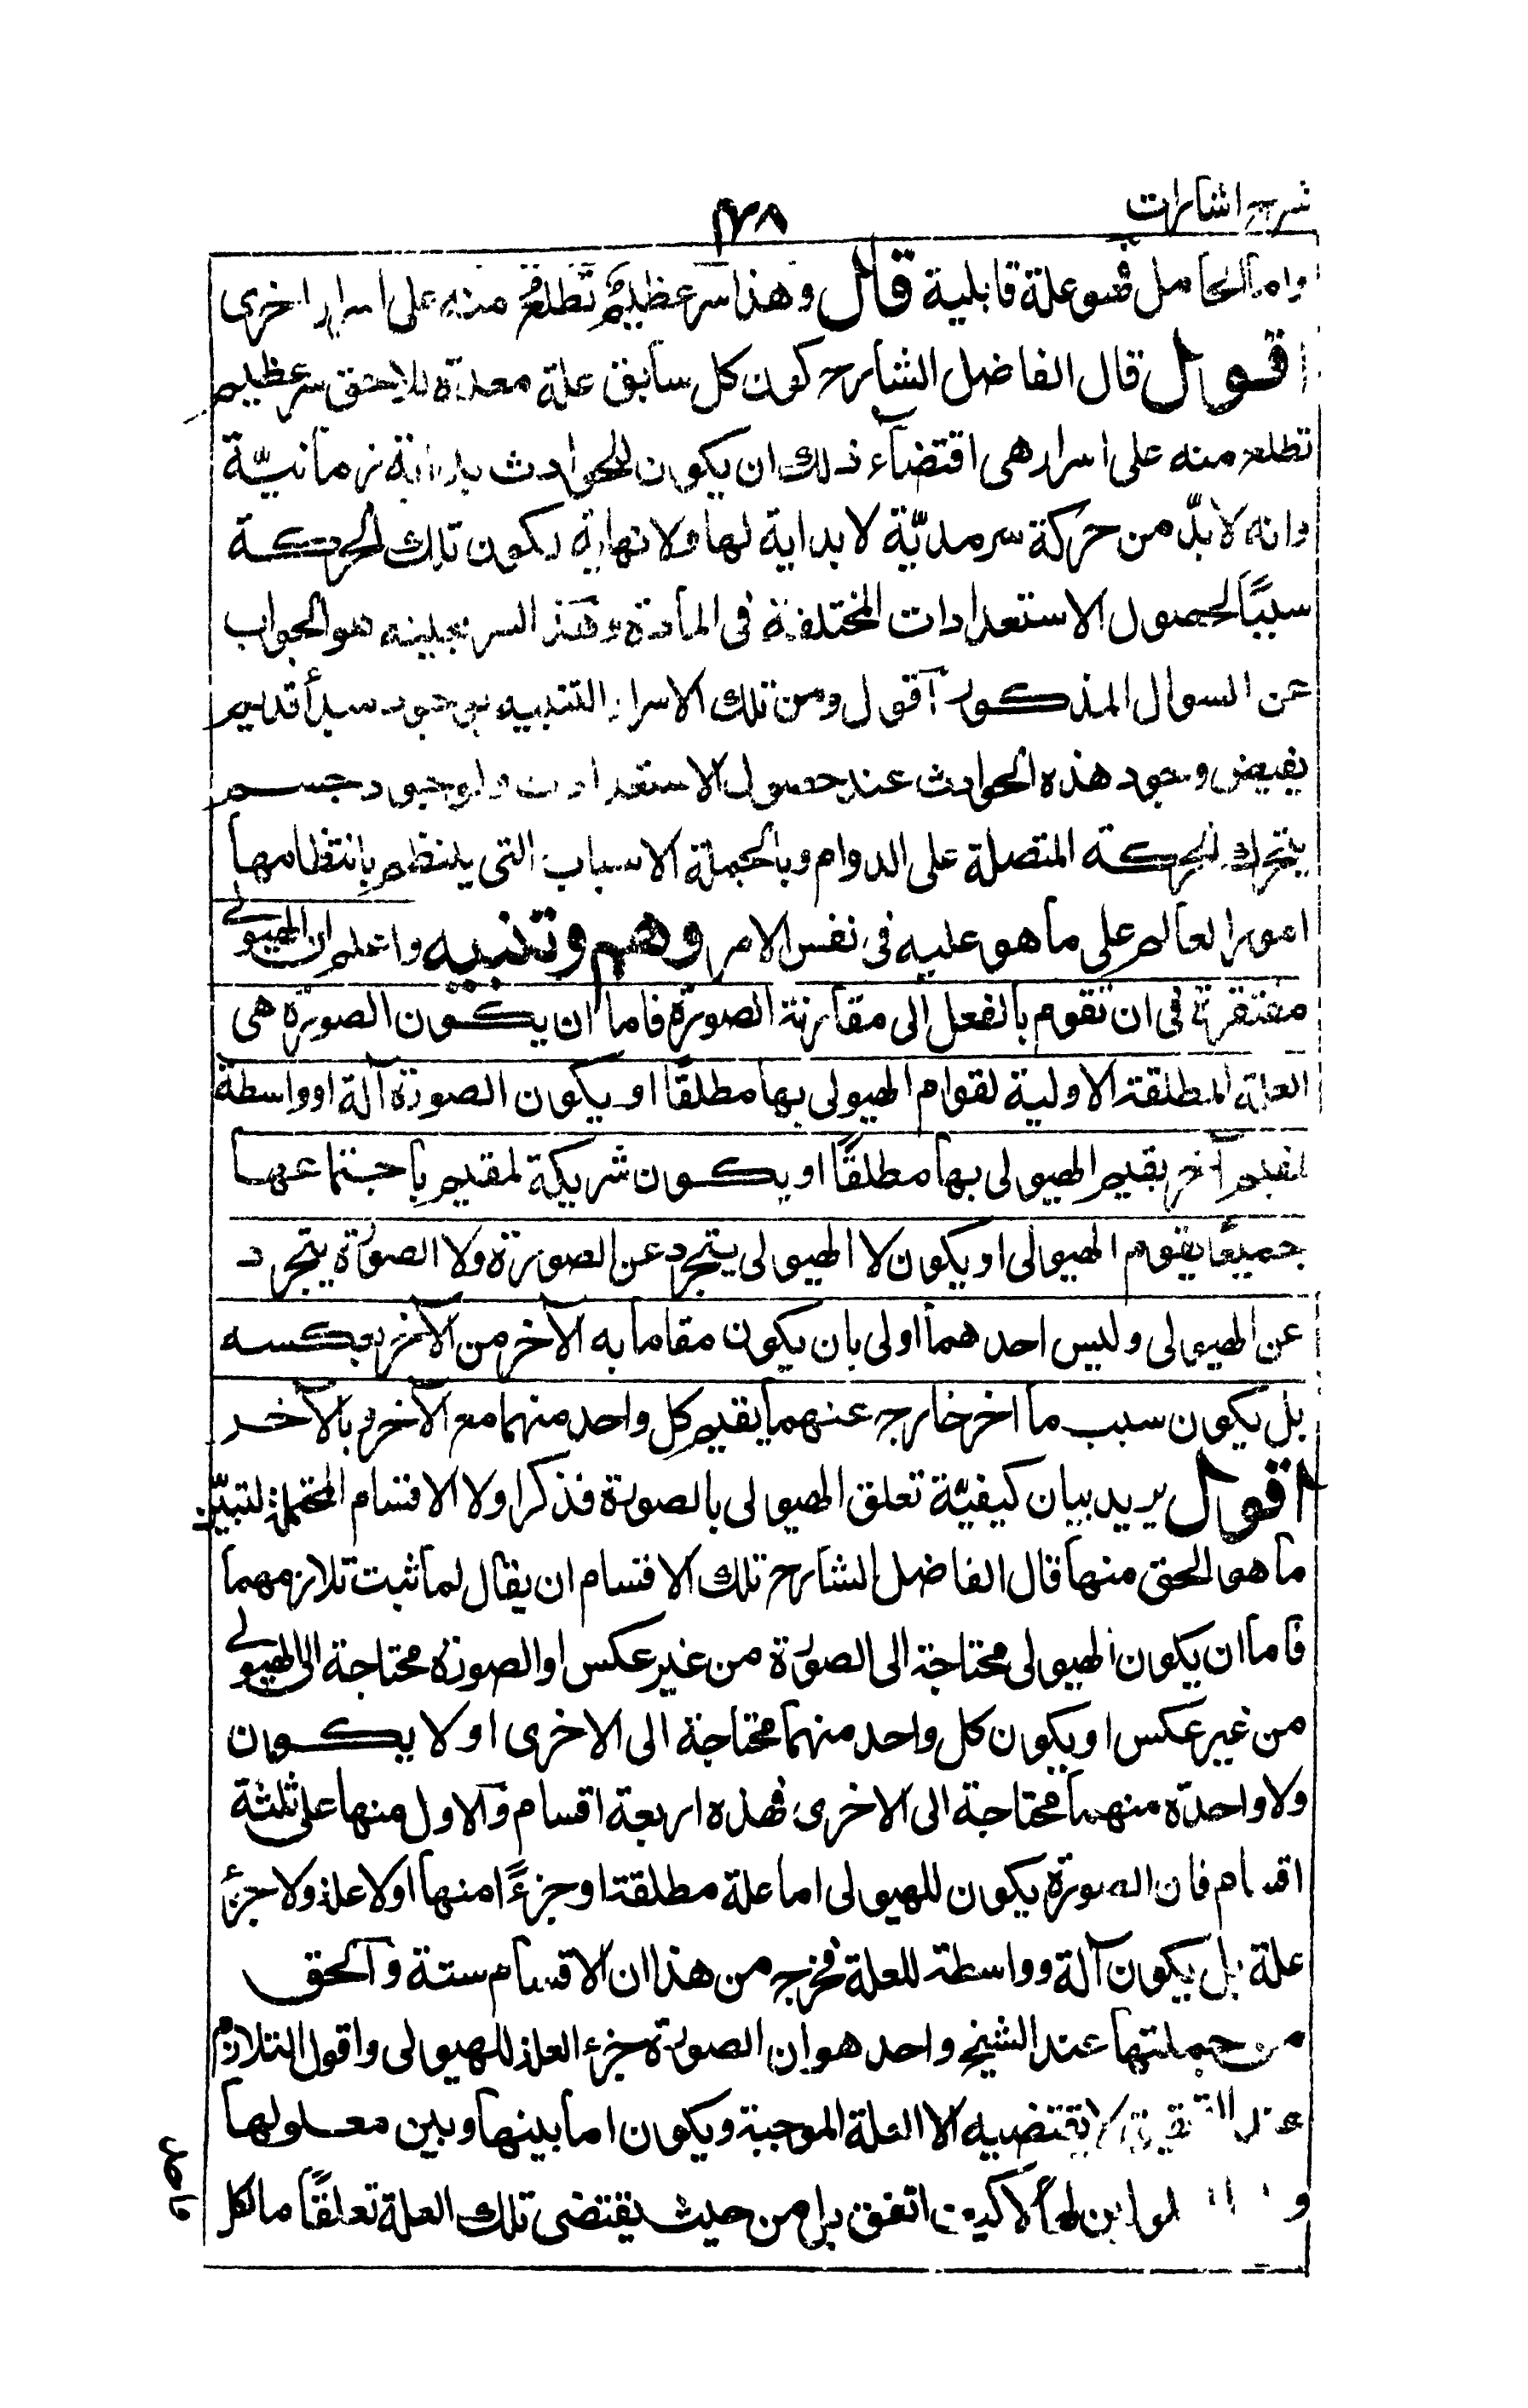 شرح اشارات
واما الحامل فهو علة قابلية قال وهذا سر عظيم تطلع منه على اسرار اخرى
اقول قال الفاضل الشارح كون كل سابق علة معدة للاحق سر عظيم
تطلع منه على اسرار هى اقتضاء ذلك ان يكون للحوادث بداية زمانيّة
وانه لا بدّ من حركة سرمديّة لا بداية لها ولا نهاية يكون تلك الحركة
سببًا لحصول الاستعدادات المختلفة فى المادة وهذا السر بعينه هو الجواب
عن السوال المذكور اقول ومن تلك الاسرار التنبيه بوجود مبدأ قديم
يفيض وجود هذه الحوادث عند حصول الاستعدادات ولوجود جسم
يتحرك الحركة المتصلة على الدوام وبالجملة الاسباب التى ينتظم بانتظامها
امور العالم على ما هو عليه فى نفس الامر وهم وتنبيه واعلم ان الهيولى
مفتقرة فى ان تقوم بالفعل الى مقارنة الصورة فاما ان يكون الصورة هى
العلة المطلقة الاولية لقوام الهيولى بها مطلقًا او يكون الصورة آلة او واسطة
لمقيم آخر يقيم الهيولى بها مطلقًا او يكون شريكة لمقيم باجتماعها
جميعًا يقوم الهيولى او يكون لا الهيولى يتجرد عن الصورة ولا الصورة يتجرد
عن الهيولى وليس احدهما اولى بان يكون مقاما به الآخر من الآخر بعكسه
بل يكون سبب ما اخر خارج عنهما يقيم كل واحد منهما مع الآخر وبالآخر
اقول يريد بيان كيفيّة تعلق الهيولى بالصورة فذكر اولا الاقسام المحتملة لتبيّن
ما هو الحق منها قال الفاضل الشارح تلك الاقسام ان يقال لما ثبت تلازمهما
فاما ان يكون الهيولى محتاجة الى الصورة من غير عكس او الصورة محتاجة الى الهيولى
من غير عكس او يكون كل واحد منهما محتاجة الى الاخرى او لا يكون
ولا واحدة منهما محتاجة الى الاخرى فهذه اربعة اقسام والاول منها على ثلثة
اقسام فان الصورة يكون للهيولى اما علة مطلقة او جزءًا منها او لا علة ولا جزء
علة بل يكون آلة وواسطة للعلة فخرج من هذا ان الاقسام ستة والحق
من جملتها عند الشيخ واحد هو ان الصورة جزء العلة للهيولى واقول التلازم
عند التحقيق لا يقتضيه الا العلة الموجبة ويكون اما بينها وبين معلولها
و لا كيف اتفق بل من حيث يقتضى تلك العلة تعلقًا ما لكل